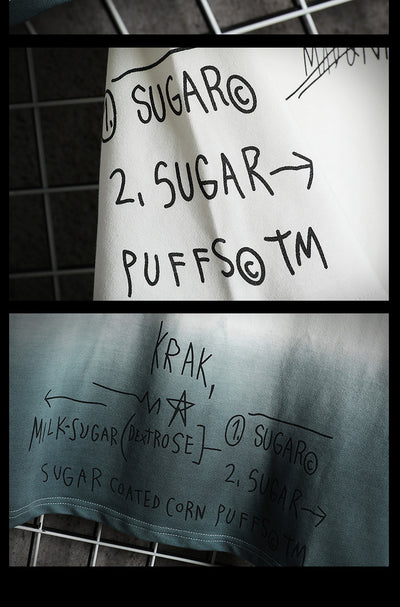 1. SUGAR©
2. SUGAR→
PUFFS© TM
KRAK,
MILK-SUGAR (DEXTROSE]
1. SUGAR©
2. SUGAR→
SUGAR COATED CORN PUFFS© TM